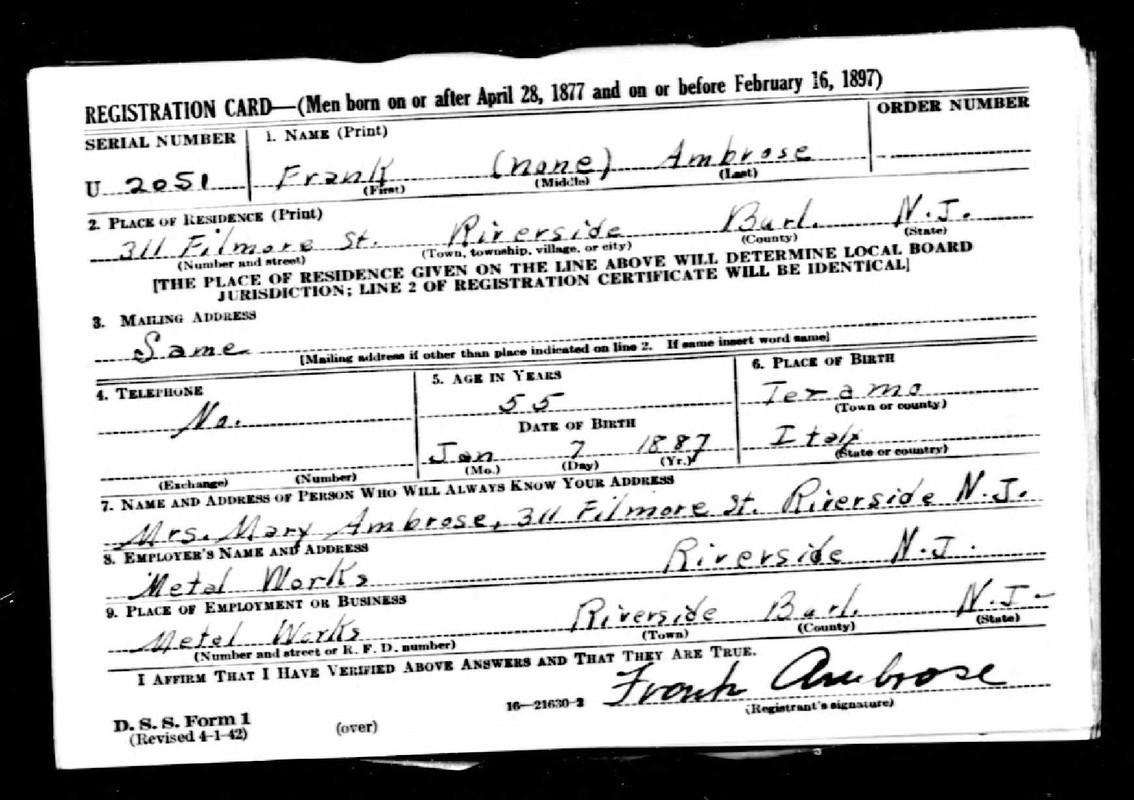 REGISTRATION CARD—(Men born on or after April 28, 1877 and on or before February 16, 1897)
SERIAL NUMBER 1. NAME (Print) ORDER NUMBER
U 2051 Frank (none) Ambrose
(First) (Middle) (Last)
2. PLACE OF RESIDENCE (Print)
311 Filmore St. Riverside Burl. N.J.
(Number and street) (Town, township, village, or city) (County) (State)
[THE PLACE OF RESIDENCE GIVEN ON THE LINE ABOVE WILL DETERMINE LOCAL BOARD
JURISDICTION; LINE 2 OF REGISTRATION CERTIFICATE WILL BE IDENTICAL]
3. MAILING ADDRESS
Same
[Mailing address if other than place indicated on line 2. If same insert word same]
4. TELEPHONE 5. AGE IN YEARS 6. PLACE OF BIRTH
No. 55 Teramo
(Town or county)
DATE OF BIRTH
Jan 7 1887 Italy
(Exchange) (Number) (Mo.) (Day) (Yr.) (State or country)
7. NAME AND ADDRESS OF PERSON WHO WILL ALWAYS KNOW YOUR ADDRESS
Mrs. Mary Ambrose, 311 Filmore St. Riverside N.J.
8. EMPLOYER'S NAME AND ADDRESS
Metal Works Riverside N.J.
9. PLACE OF EMPLOYMENT OR BUSINESS
Metal Works Riverside Burl. N.J.
(Number and street or R. F. D. number) (Town) (County) (State)
I AFFIRM THAT I HAVE VERIFIED ABOVE ANSWERS AND THAT THEY ARE TRUE.
Frank Ambrose
D. S. S. Form 1 16—21630-2 (Registrant's signature)
(Revised 4-1-42) (over)